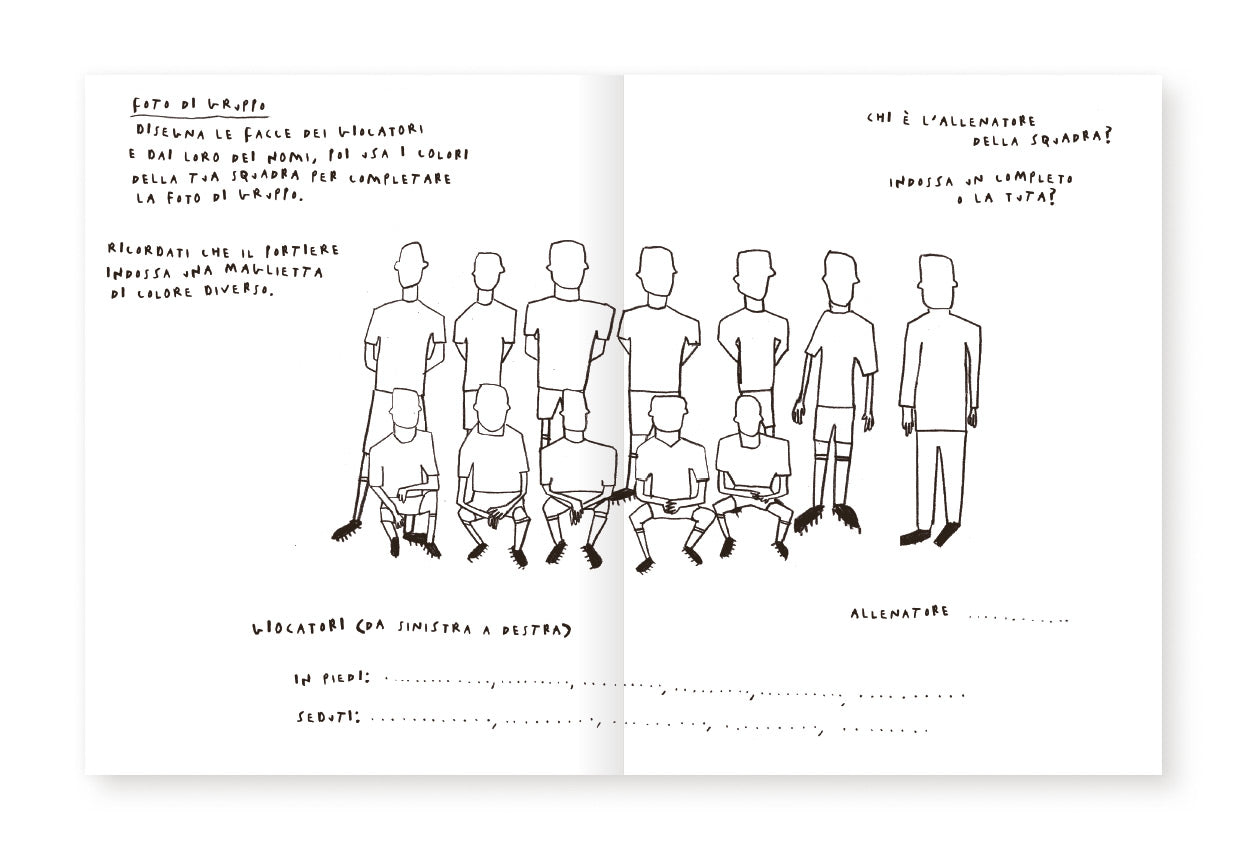 FOTO DI GRUPPO
DISEGNA LE FACCE DEI GIOCATORI
E DAI LORO DEI NOMI, POI USA I COLORI
DELLA TUA SQUADRA PER COMPLETARE
LA FOTO DI GRUPPO.
RICORDATI CHE IL PORTIERE
INDOSSA UNA MAGLIETTA
DI COLORE DIVERSO.
CHI È L'ALLENATORE
DELLA SQUADRA?
INDOSSA UN COMPLETO
O LA TUTA?
ALLENATORE ............
GIOCATORI (DA SINISTRA A DESTRA)
IN PIEDI: ............., ........., .........., ........., ........., ..........
SEDUTI: ............, .........., .........., ........., ........